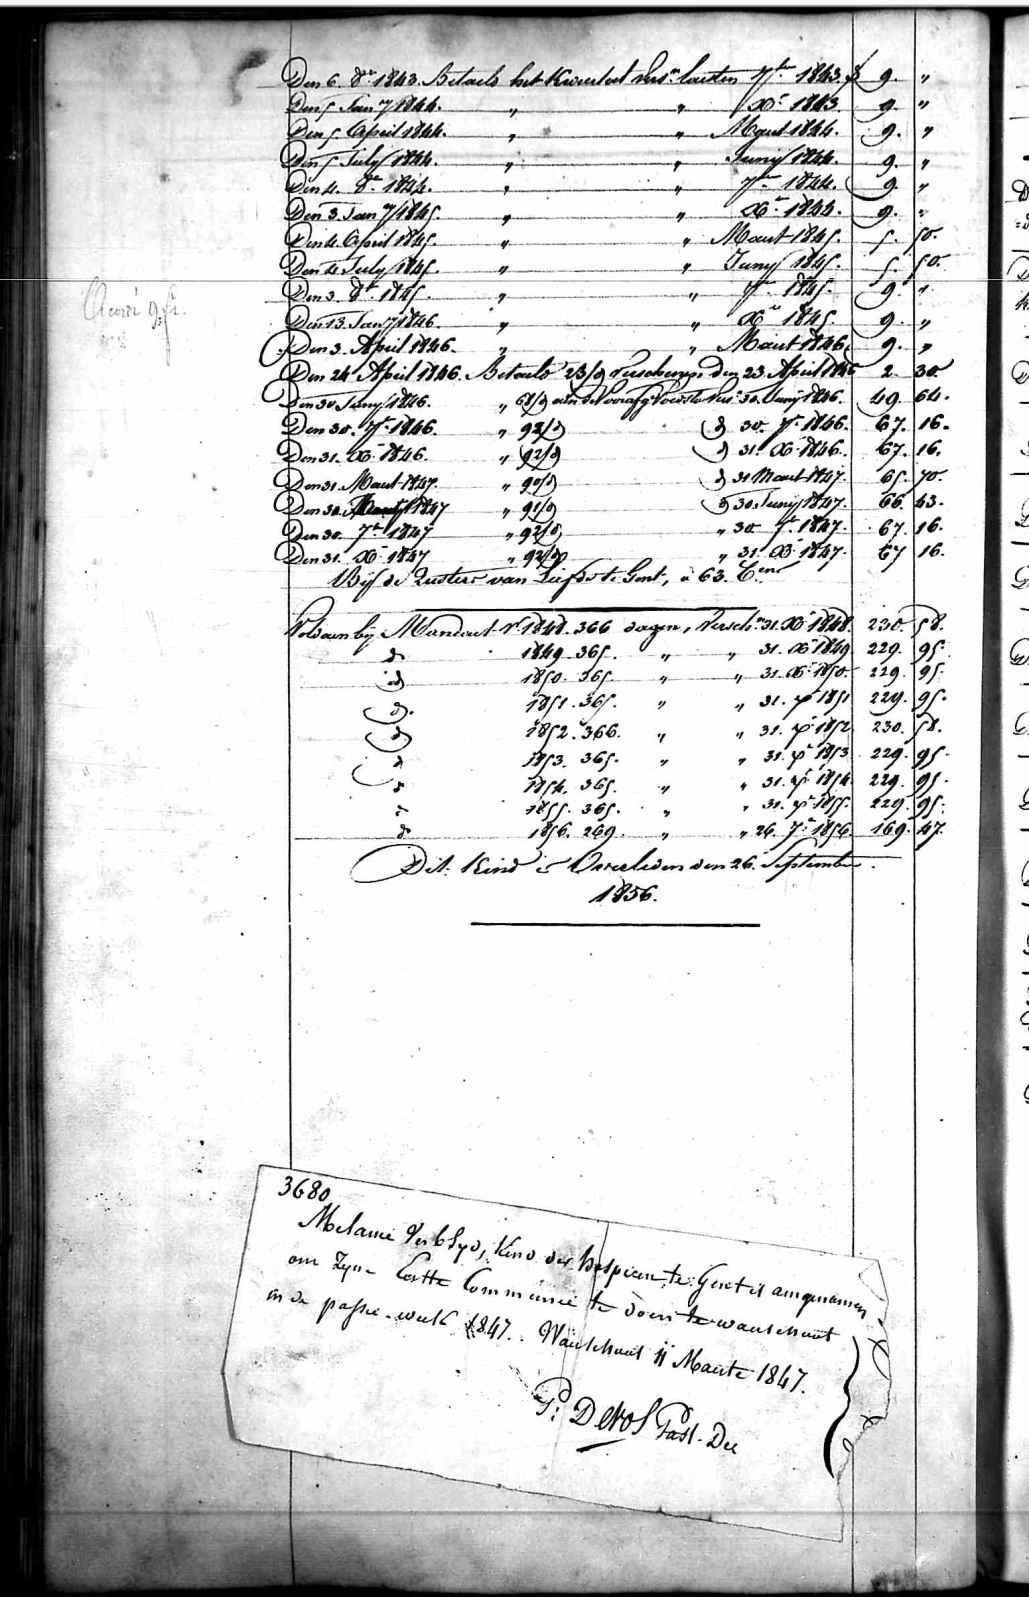 Den 6. 8re 1843. Betaelt het kwartael versn laesten 7bre 1843. f 9. "
Den 5 Jany 1844. " " Xre 1843. 9. "
Den 5 April 1844. " " Maart 1844. 9. "
Den 5 July 1844. " " Juny 1844. 9. "
Den 4. 8re 1844. " " 7bre 1844. 9. "
Den 3. Jany 1845. " " Xre 1844. 9. "
Den 4. April 1845. " " Maart 1845. 5. 50.
Den 4 July 1845. " " Juny 1845. 5. 50.
Den 3. 8re 1845. " " 7bre 1845. 9. "
Den 13. Jany 1846. " " Xre 1845. 9. "
Den 3. April 1846. " " Maart 1846. 9. "
Den 24 April 1846. Betaelt 23/d verschenen den 23 April 1846 2. 30
Den 30 Juny 1846. " 68/d aen de Versn 30. Juny 1846. 49. 64.
Den 30. 7re 1846. " 92/d d 30. 7re 1846. 67. 16.
Den 31. Xre 1846. " 92/d d 31. Xre 1846. 67. 16.
Den 31. Maart 1847. " 90/d d 31 Maart 1847. 65. 70.
Den 30. 1847 " 91/d d 30 Juny 1847. 66. 43.
Den 30. 7re 1847 " 92/d " 30. 7re 1847. 67. 16.
Den 31. Xre 1847 " 92/d " 31. Xre 1847. 67 16.
Bij de Zusters van Liefde te Gent, à 63. Cen
Voldaen bij Mandaet Nr 1848. 366 dagen, Versch. 31. Xre 1848. 230. 58.
d 1849. 365. " " 31. Xre 1849 229. 95.
d 1850. 365. " " 31. Xre 1850. 229. 95.
d. 1851. 365. " " 31. Xre 1851 229. 95.
d 1852. 366. " " 31. Xre 1852 230. 58.
d 1853. 365. " " 31. Xre 1853 229. 95.
d 1854. 365. " " 31. Xre 1854 229. 95.
d 1855. 365. " " 31. Xre 1855. 229. 95.
d 1856. 269. " " 26. 7re 1856 169. 47.
Dit Kind is Overleden den 26. September.
1856.
3680
Melanie Verbhyd, Kind des hospicen te Gent is aengenomen
om zyne Eerste Communie te doen te waerschoot
in de passie-week 1847. Waerschoot 11 Maerte 1847.
P: Devos Past. Dec